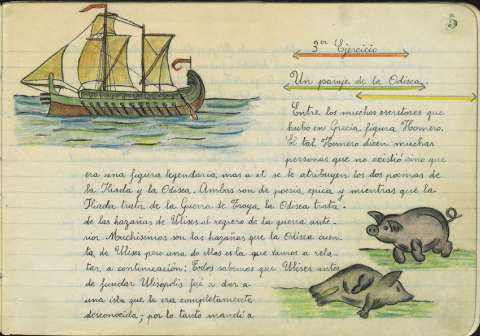 5
3er Ejercicio
Un pasaje de la Odisea.
Entre los muchos escritores que
hubo en Grecia, figura Homero.
El tal Homero dicen muchas
personas que no existió sino que
era una figura legendaria, mas a el se le atribuyen los dos poemas de
la Iliada y la Odisea. Ambas son de poesia epica y mientras que la
Iliada trata de la Guerra de Troya, la Odisea trata
de las hazañas de Ulises al regreso de la guerra ante-
rior. Muchisimas son las hazañas que la Odisea cuen-
ta, de Ulises pero una de ellas es la que vamos a rela-
tar, a continuación: Todos sabemos que Ulises antes
de fundar Ulisopolis fué a dar a
una isla que le era completamente
desconocida; por lo tanto mandó a